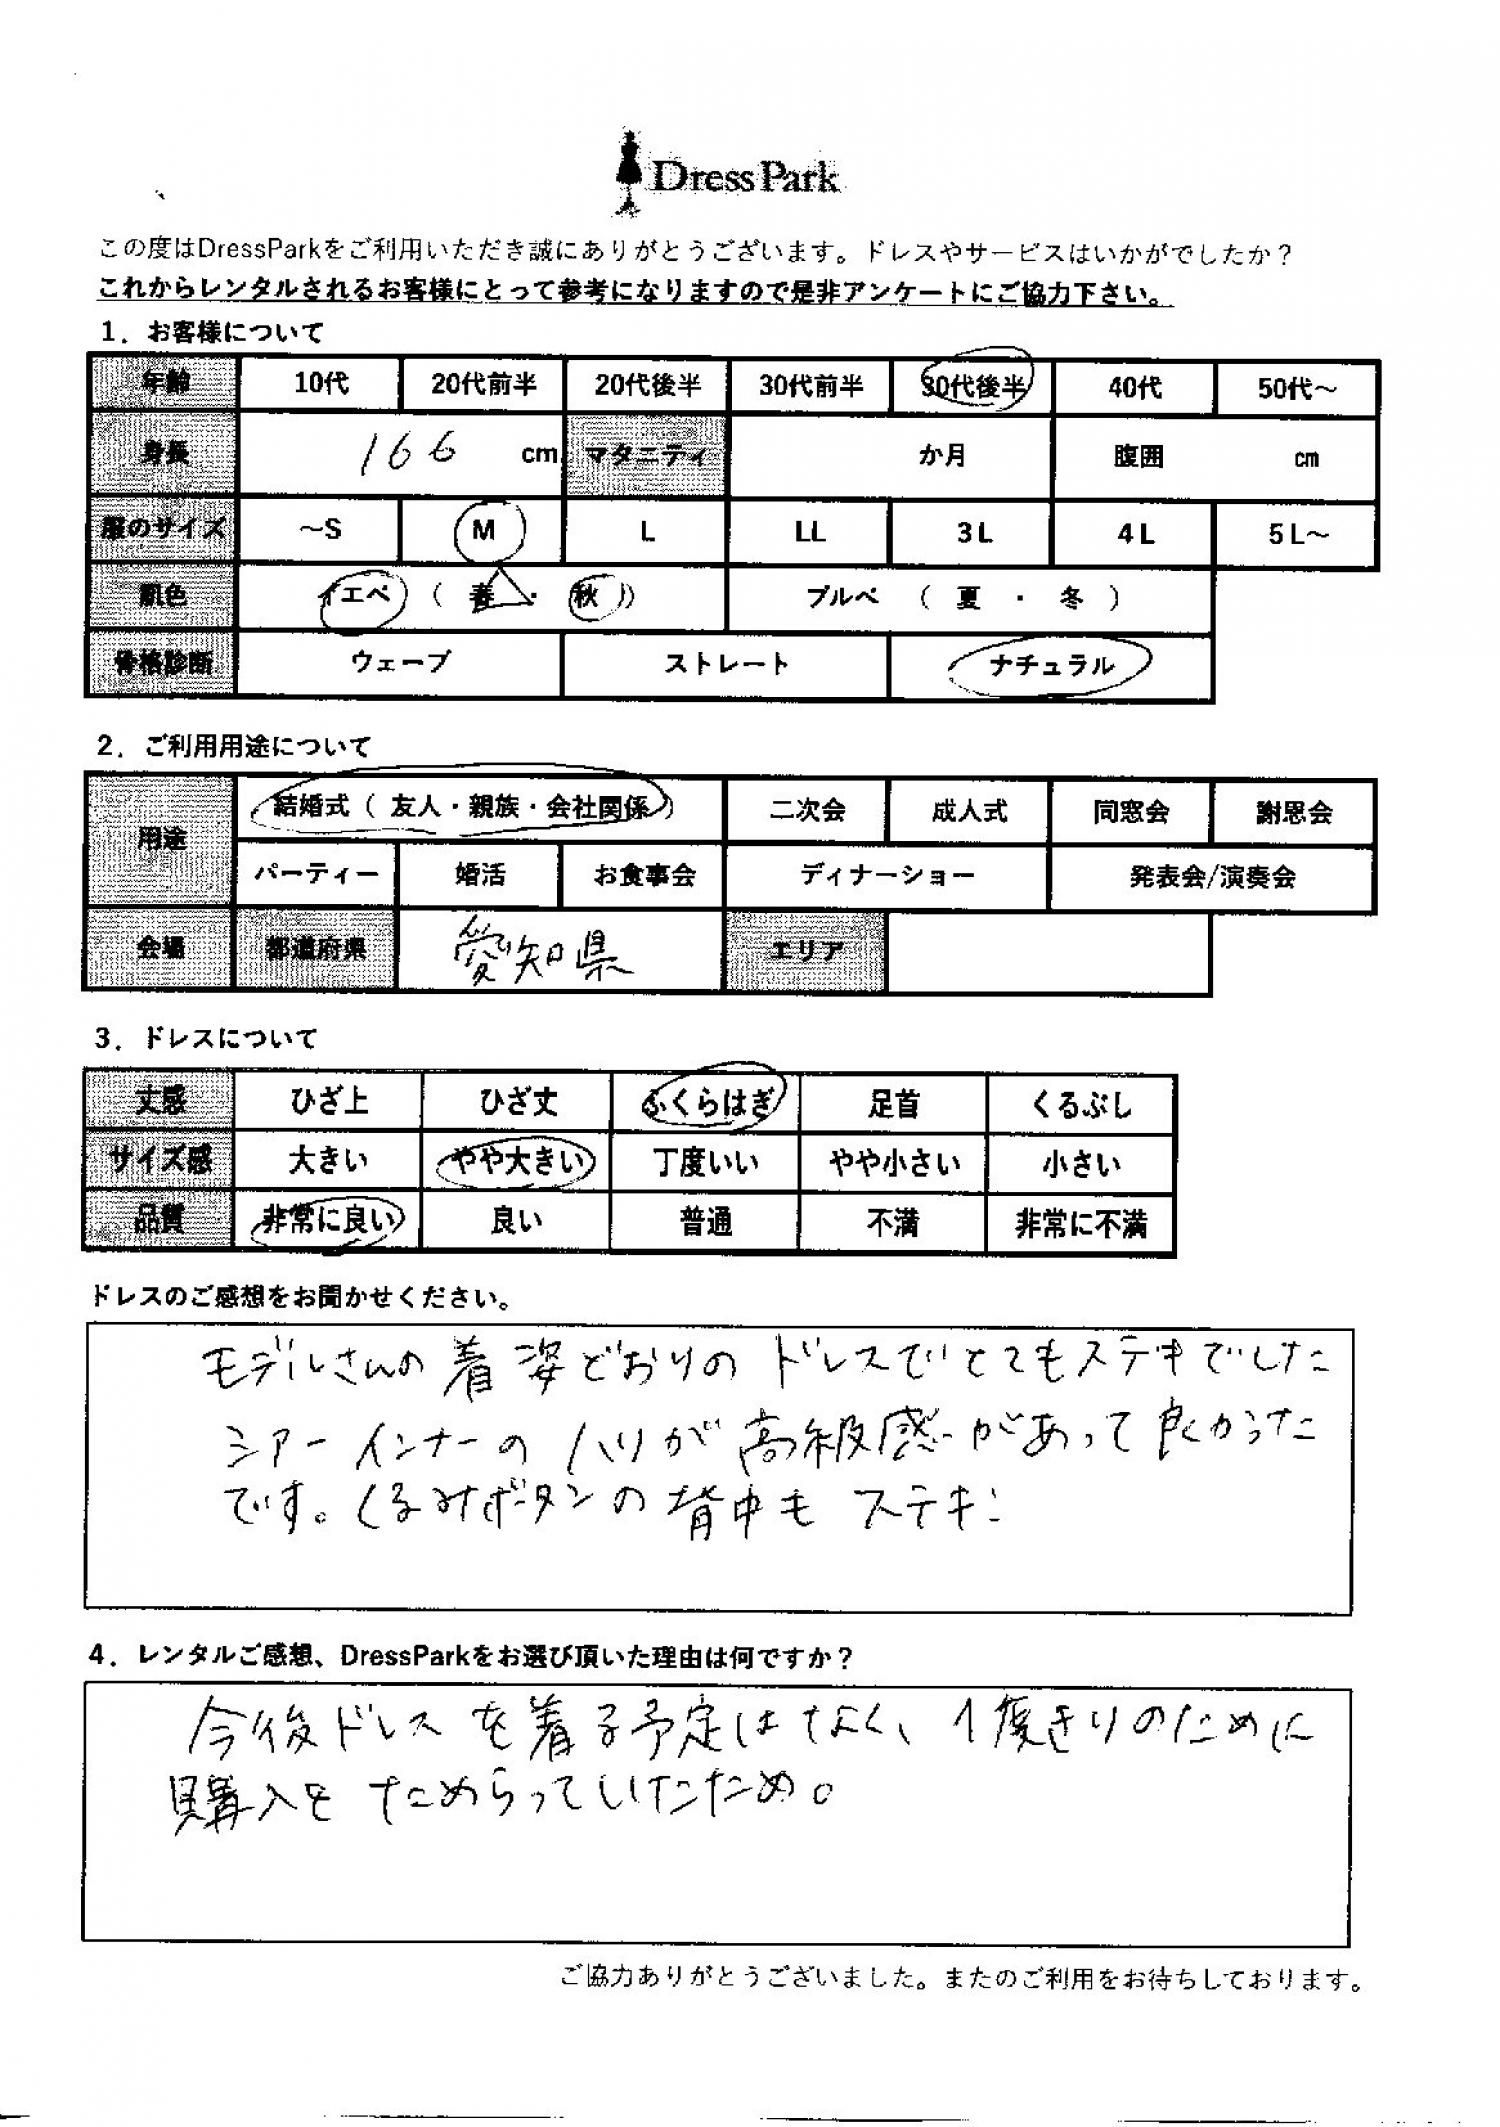 DressPark
この度はDressParkをご利用いただき誠にありがとうございます。ドレスやサービスはいかがでしたか？
これからレンタルされるお客様にとって参考になりますので是非アンケートにご協力下さい。
1．お客様について
年齢 10代 20代前半 20代後半 30代前半 30代後半 40代 50代～
身長 166 cm マタニティ か月 腹囲 cm
服のサイズ ～S M L LL 3L 4L 5L～
肌色 イエベ （ 春 ・ 秋 ） ブルベ （ 夏 ・ 冬 ）
骨格診断 ウェーブ ストレート ナチュラル
2．ご利用用途について
用途 結婚式（ 友人・親族・会社関係 ） 二次会 成人式 同窓会 謝恩会
パーティー 婚活 お食事会 ディナーショー 発表会/演奏会
会場 都道府県 愛知県 エリア
3．ドレスについて
丈感 ひざ上 ひざ丈 ふくらはぎ 足首 くるぶし
サイズ感 大きい やや大きい 丁度いい やや小さい 小さい
品質 非常に良い 良い 普通 不満 非常に不満
ドレスのご感想をお聞かせください。
モデルさんの着姿どおりのドレスでとてもステキでした
シアーインナーのハリが高級感があって良かった
です。くるみボタンの背中もステキ
4．レンタルご感想、DressParkをお選び頂いた理由は何ですか？
今後ドレスを着る予定はなく、1度きりのために
購入をためらっていたため。
ご協力ありがとうございました。またのご利用をお待ちしております。